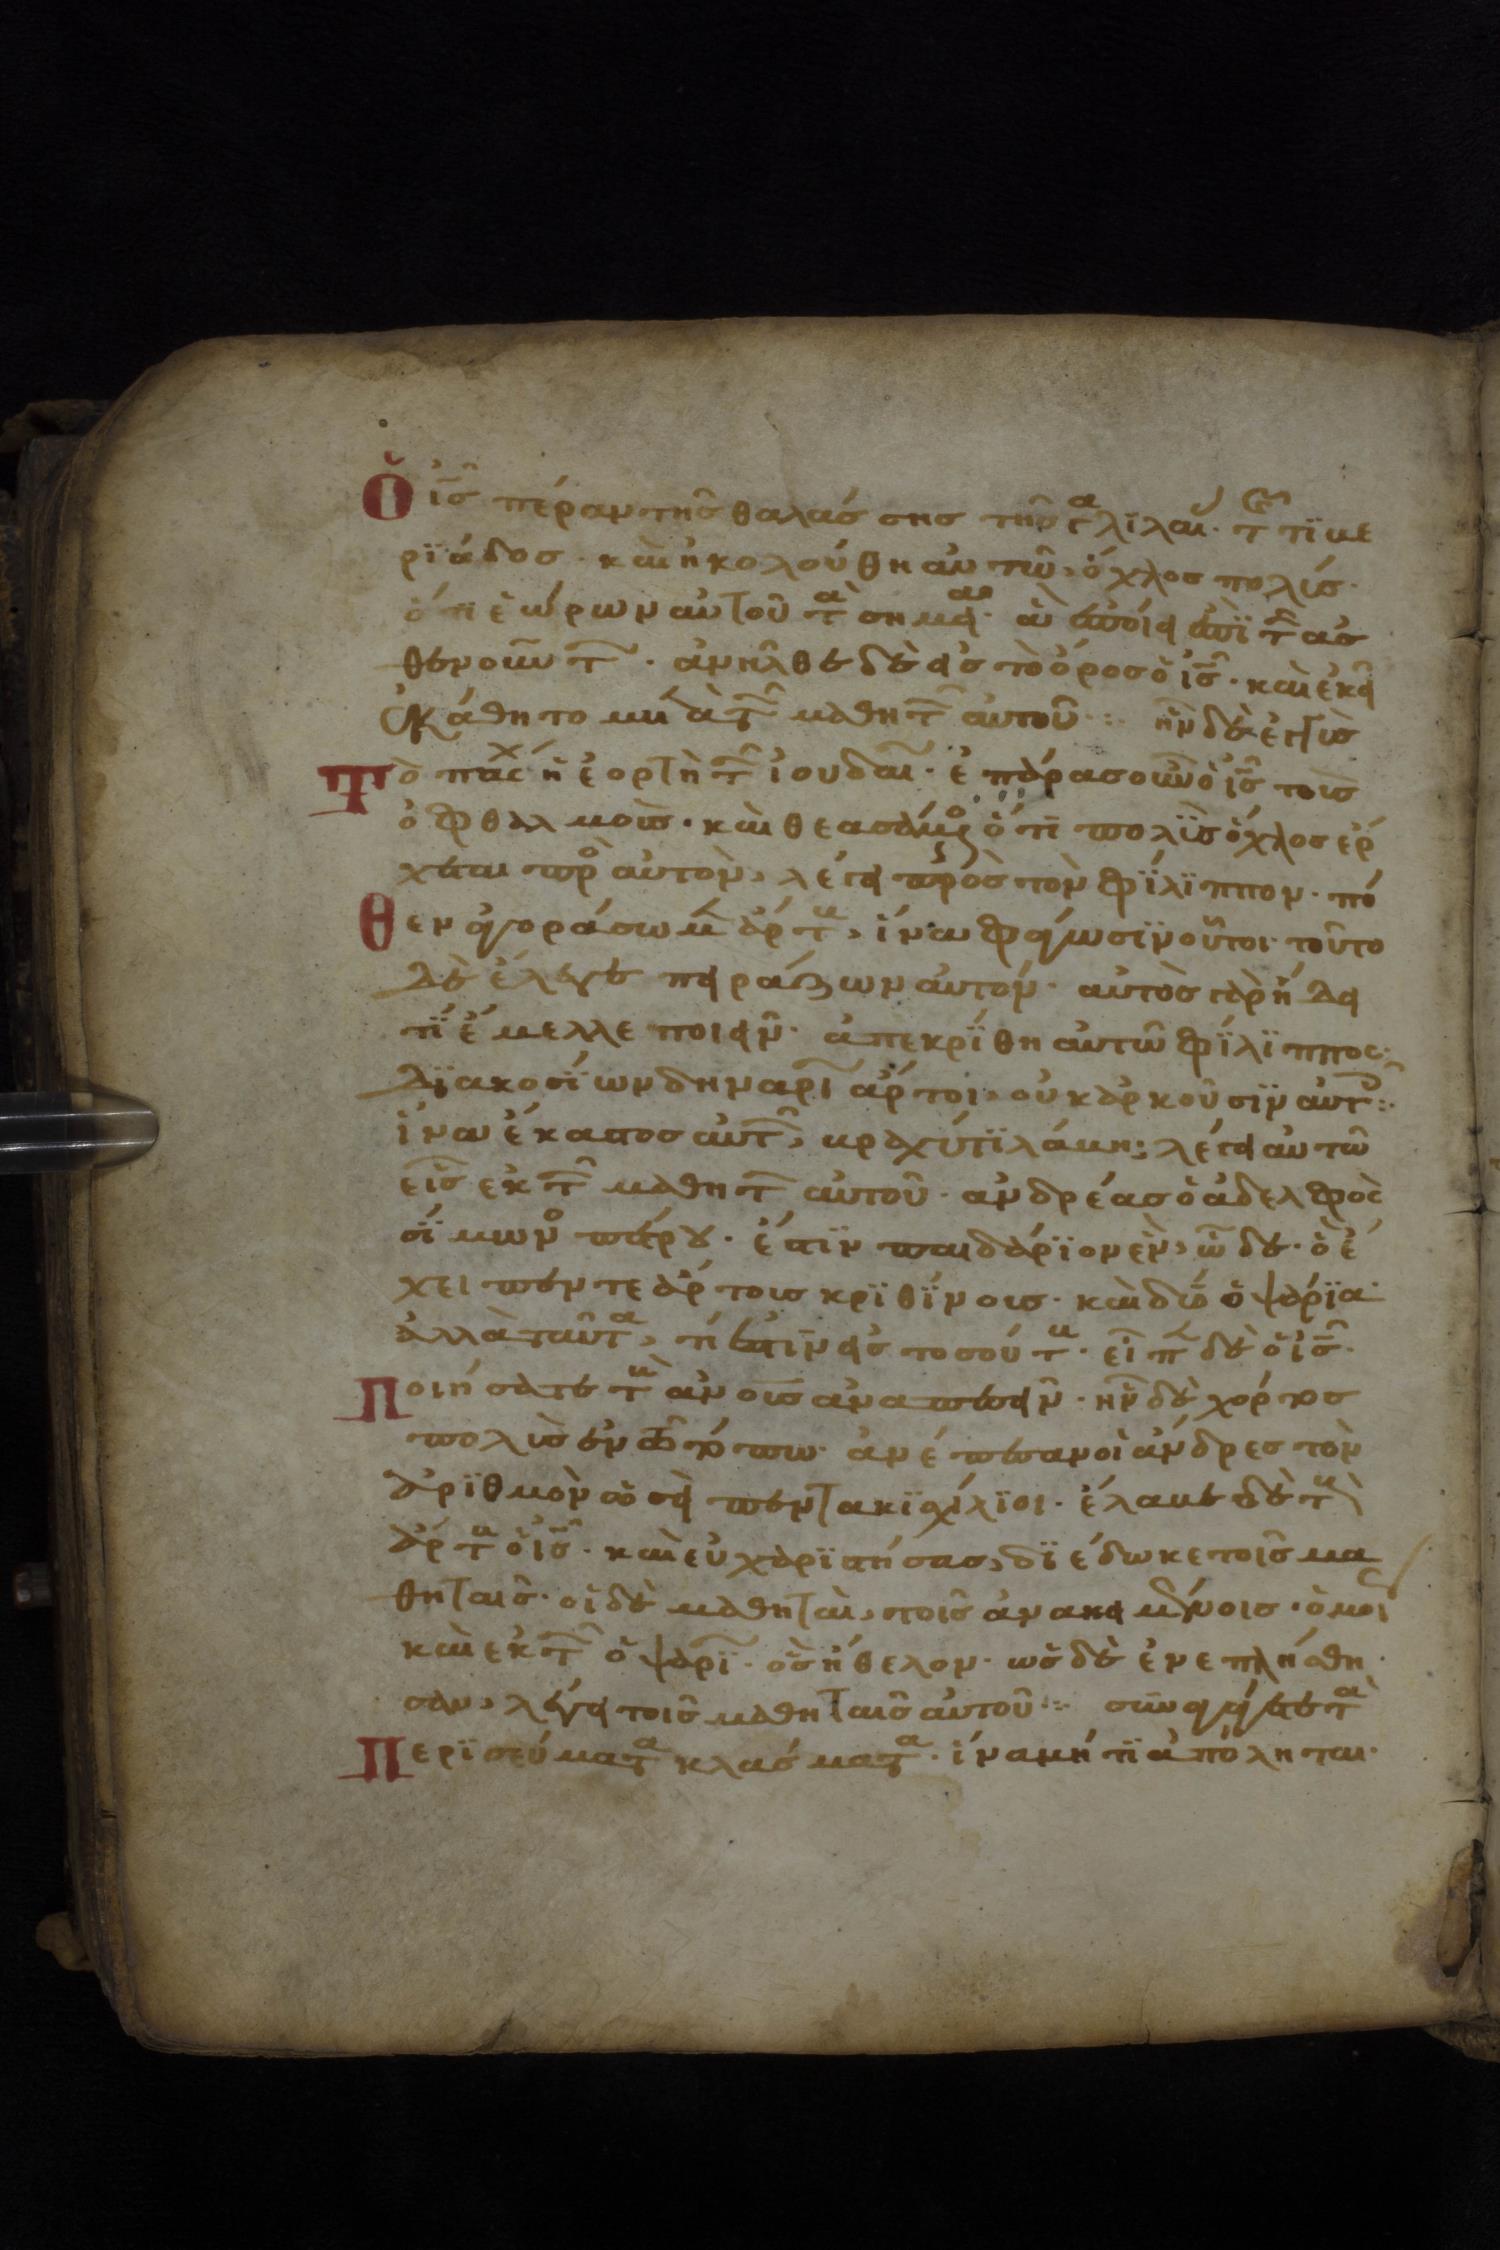 Ὁ ἰς̅ πέραν τῆς θαλάσσης τῆς γαλϊλαί· τ̅ τϊβε
ρϊάδοσ· καὶ ἠκολούθη αὐτῶ, ὄχλοσ πολίσ·
ὅτι ἑώρων αὐτοῦ τὰ σημεῖα· ἃ ἐποίει ἐπϊ τ̅ ἀσ
θενούν τ̅· ἀνῆλθε δὲ εἰσ τὸ ὄροσ ὁ ἰς̅· καὶ ἐκεῖ
ἐκάθητο μετὰ τ̅ μαθητ̅ αὐτοῦ·:· ἦν δὲ ἐγγὺσ
Τὸ πάσχ ἡ ἑορτὴ τ̅ ἰουδαί· ἐπάρασ οὖν ὁ ἰς̅ τοὶσ
ὀφθαλμοὶσ· καὶ θεασάμενο ὅτι πολῒσ ὄχλοσ ἔρ
χεται πρὸ αὐτὸν, λέγει πρὸσ τὸν φΐλϊππον· πό
θεν ἀγοράσωμ ἄρτ, ἵνα φάγωσϊν οὗτοι· τοῦτο
δὲ ἔλεγε πειράζων αὐτόν· αὐτὸσ γὰρ ἤδει
τΐ ἔμελλε ποιεῖν· ἀπεκρΐθη αὐτῶ φΐλϊπποσ·
δϊακοσΐων δηναρϊ ἄρτοι, οὐκ ἀρκοῦσϊν αὐτ·:·
ἵνα ἕκαστοσ αὐτ, βραχύ τϊ λάβη; λέγει αὐτῶ
εἷσ ἐκ τ̅ μαθητ̅ αὐτοῦ· ἀνδρέασ ὁ ἀδελφὸσ
σΐμωνο πέτρου· ἔστϊν παιδάρϊον ἓν, ὧδε· ὃ ἔ
χει πέντε ἄρτοισ κρϊθΐνοισ· καὶ δύο ὀψάρϊα·
ἀλλὰ ταῦτα, τί ἐστϊν εἰσ τοσούτ· εἶπ δὲ ὁ ἰς̅·
Ποιήσατε τ ἀνοισ ἀναπεσεῖν· ἦν δὲ χόρτοσ
πολὶσ ἐν τῶ τόπω· ἀνέπεσαν οἱ ἄνδρεσ τὸν
ἀρϊθμὸν ὡσεὶ πεντακϊσχίλϊοι· ἔλαβε δὲ τ
ἄρτ ὁ ἰς̅· καὶ εὐχαρϊστήσασ, δϊέδωκε τοῖσ μα
θηταῖσ· οἱ δὲ μαθηταὶ, τοῖσ ἀνακειμένοισ· ὁμοί
καὶ ἐκ τ̅ ὀψαρΐ· ὅσ ἤθελον· ὡσ δὲ ἐνεπλήσθη
σαν, λέγει τοῖσ μαθηταῖσ αὐτοῦ·:· συναγάγετε τὰ
Περϊσεύματα κλάσματα· ἵνα μή τϊ ἀπόληται·